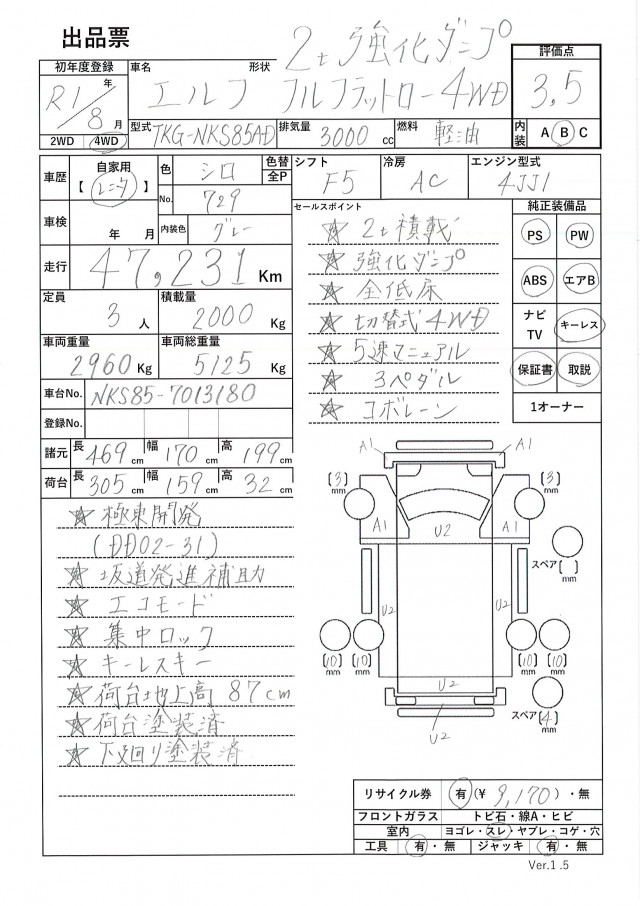 出品票
2t 強化ダンプ
初年度登録
車名
形状
評価点
R1年
8月
エルフ フルフラットロー4WD
3.5
2WD
4WD
型式
TKG-NKS85AD
排気量
3000cc
燃料
軽油
内装
A B C
車歴
自家用
【レンタ】
色
シロ
色替
全P
シフト
F5
冷房
AC
エンジン型式
4JJ1
No.
729
車検
年 月
内装色
グレー
走行
47,231 Km
定員
3人
積載量
2000 Kg
車両重量
2960 Kg
車両総重量
5125 Kg
車台No.
NKS85-7013180
登録No.
諸元
長 469 cm
幅 170 cm
高 199 cm
荷台
長 305 cm
幅 159 cm
高 32 cm
セールスポイント
☆ 2t積載
☆ 強化ダンプ
☆ 全低床
☆ 切替式4WD
☆ 5速マニュアル
☆ 3ペダル
☆ コボレーン
純正装備品
PS
PW
ABS
エアB
ナビ
TV
キーレス
保証書
取説
1オーナー
☆ 極東開発
(DD02-31)
☆ 坂道発進補助
☆ エコモード
☆ 集中ロック
☆ キーレスキー
☆ 荷台地上高 87cm
☆ 荷台塗装済
☆ 下廻り塗装済
A1
A1
(3)
mm
(3)
mm
A1
U2
A1
スペア( )
mm
U2
U2
(10)
mm
(10)
mm
(10)
mm
(10)
mm
U2
U2
スペア(4)
mm
リサイクル券
有(¥ 9,170)・無
フロントガラス
トビ石・線A・ヒビ
室内
ヨゴレ・スレ・ヤブレ・コゲ・穴
工具
有・無
ジャッキ
有・無
Ver.1.5